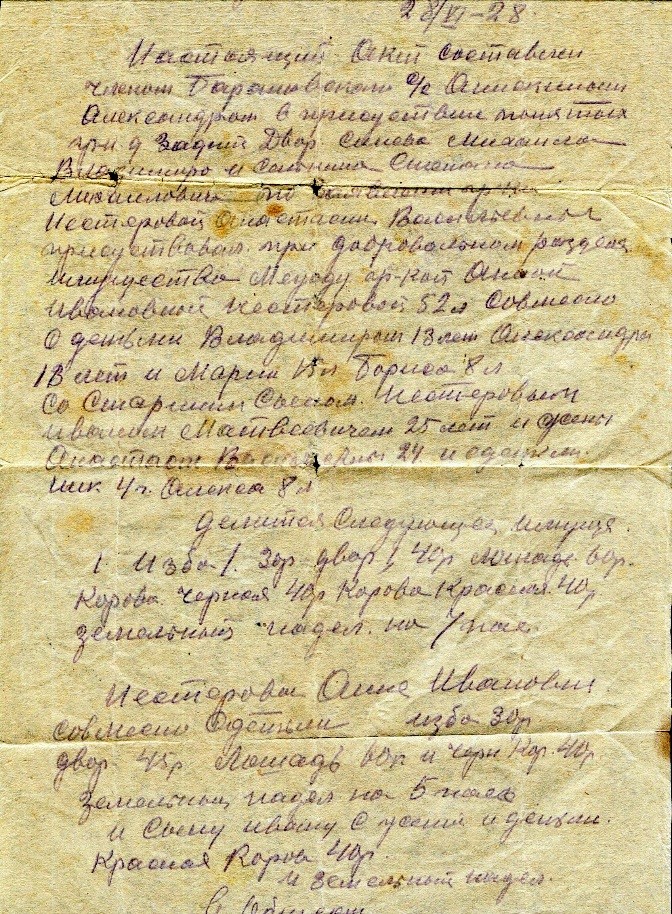 28/VI-28.
Настоящий Акт составлен
членом Барановском с/с Аниокиным
Александром в присуствие понятых
гри д Задний Двор Синева Михаила
Владимиро и Степана
Михаиловича по гр-ки
Нестеровой Анастасии Васильевны
присуствовал при добровальном раздела
имущества Между гр-кой Анной
Ивановной Нестеровой 52 л Совмесно
С детьми Владимиром 13 лет Александры
18 лет и Марии 15 л Бориса 8 л
Со Старшим Сыном Нестеровым
Иваном Матвеевичем 25 лет и жены
Анастасии Васильевны 24 и
4 г. Алекса 8 л
Делится Следующее имуще.
1 Изба 1. 30р двор 1 40р Лошадь 60р.
Корова черная 40р Корова Красная 40р
земельный надел на 7 пае
Нестерова Анне Ивановны
совмесно С детьми изба 30р
двор 45р Лошадь 60р и черн Кор. 40р
земельный надел на 5 паев
и Сыну Ивану с женой и
Красная Корова 40р.
и Земельный надел.